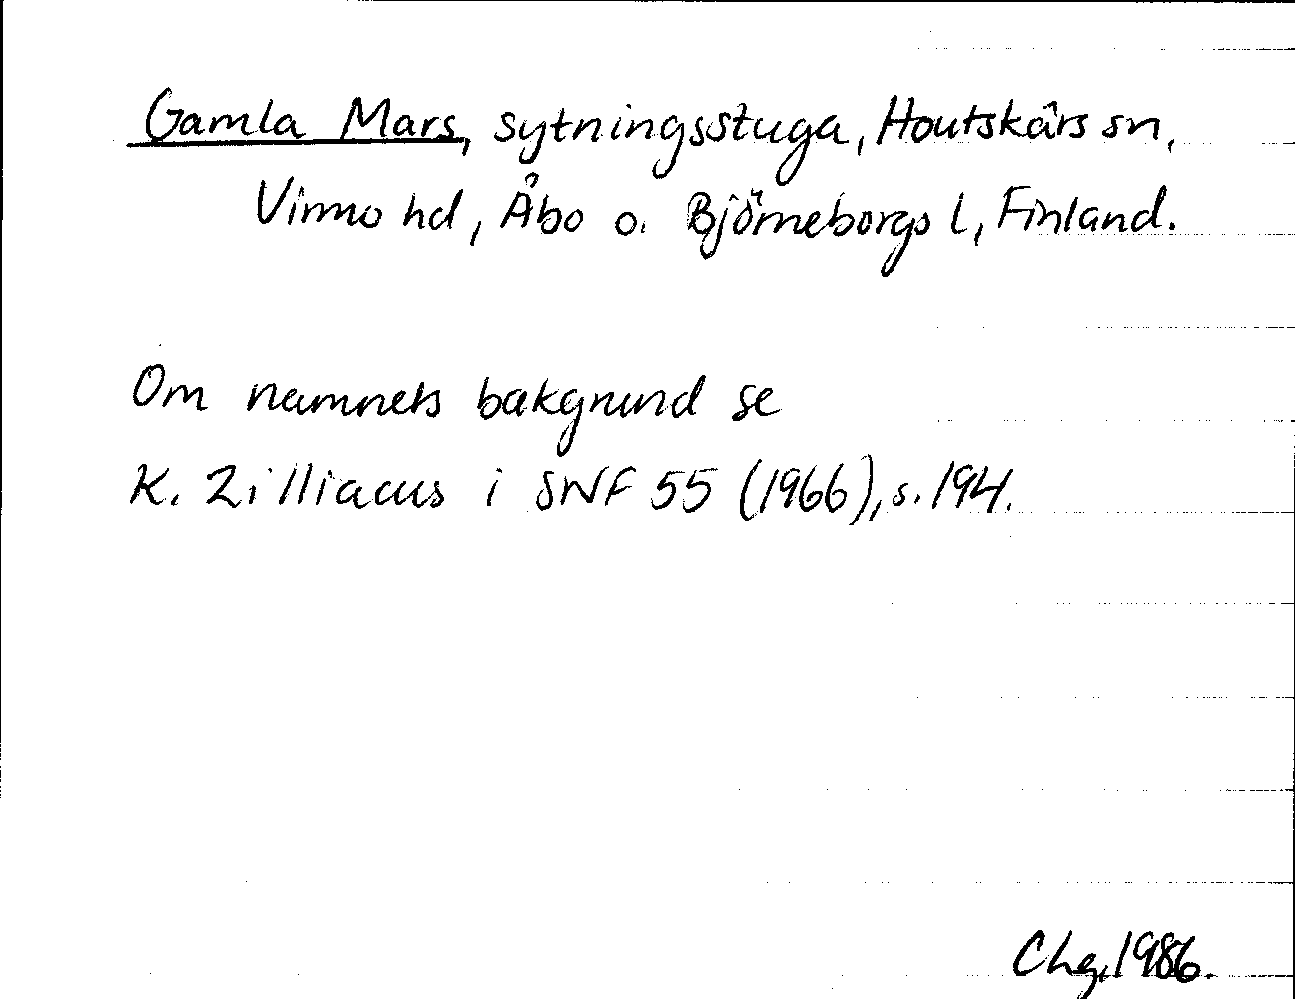 Gamla Mars, sytningsstuga, Houtskärs sn,
Virmo hd, Åbo o. Björneborgs l, Finland.
Om namnets bakgrund se
K. Zilliacus i SNF 55 (1966), s. 194.
Chg. 1986.